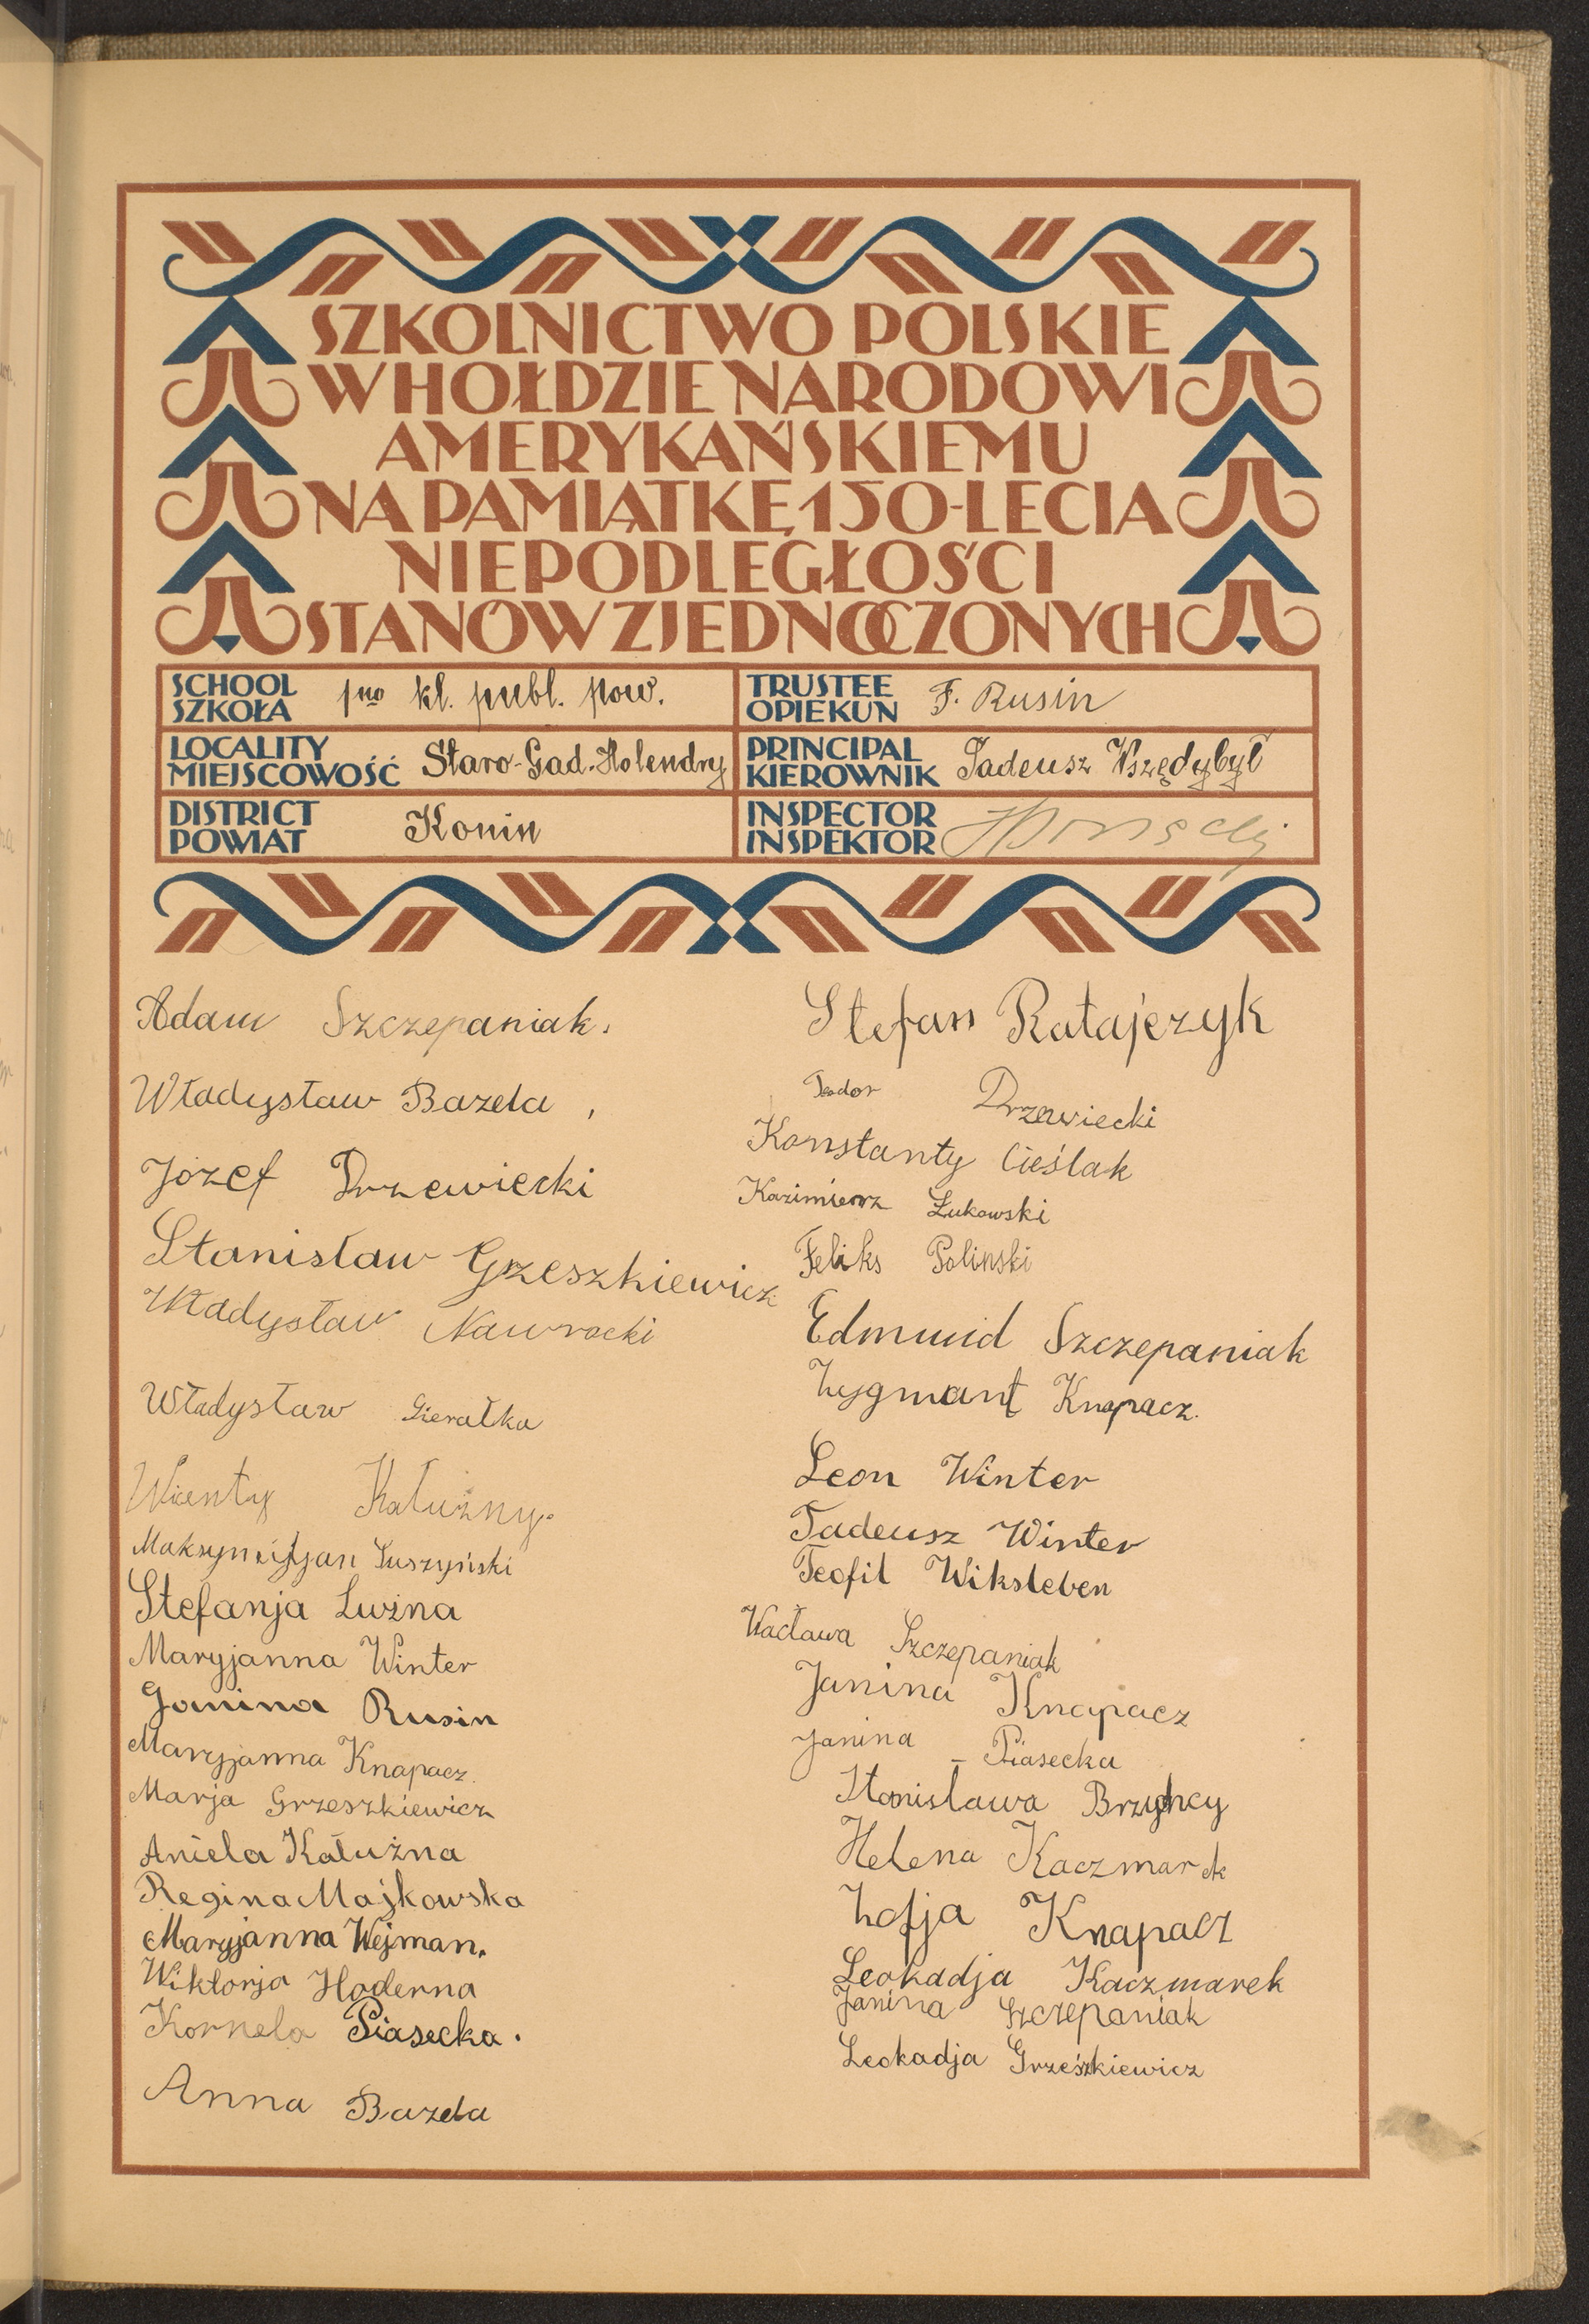 SZKOLNICTWO POLSKIE
W HOŁDZIE NARODOWI
AMERYKAŃSKIEMU
NA PAMIĄTKĘ 150-LECIA
NIEPODLEGŁOŚCI
STANÓW ZJEDNOCZONYCH
SCHOOL
SZKOŁA
kl. publ. pow.
TRUSTEE
OPIEKUN
F. Rusin
LOCALITY
MIEJSCOWOŚĆ
Staro-Gad.-Holendry
PRINCIPAL
KIEROWNIK
Tadeusz Wszędybył
DISTRICT
POWIAT
Konin
INSPECTOR
INSPEKTOR
Adam Szczepaniak.
Władysław Bazela,
Józef Drzewiecki
Stanisław Grzeszkiewicz
Władysław Nawrocki
Władysław Gierałka
Wicenty Kałużny.
Maksymiljan Suszyński
Stefanja Luźna
Maryjanna Winter
Janina Rusin
Maryjanna Knapacz.
Marja Grzeszkiewicz
Aniela Kałużna
Regina Majkowska
Maryjanna Wejman.
Wiktorja Hoderna
Kornela Piasecka.
Anna Bazela
Stefan Ratajczyk
Teodor Drzewiecki
Konstanty Cieślak
Kazimierz Łukowski
Feliks Polinski
Edmund Szczepaniak
Zygmant Knapacz.
Leon Winter
Tadeusz Winter
Teofil Wiksleben
Wacława Szczepaniak
Janina Knapacz
Janina - Piasecka
Stanisława
Helena Kaczmarek
Zofja Knapacz
Leokadja Kaczmarek
Janina Szczepaniak
Leokadja Grześzkiewicz